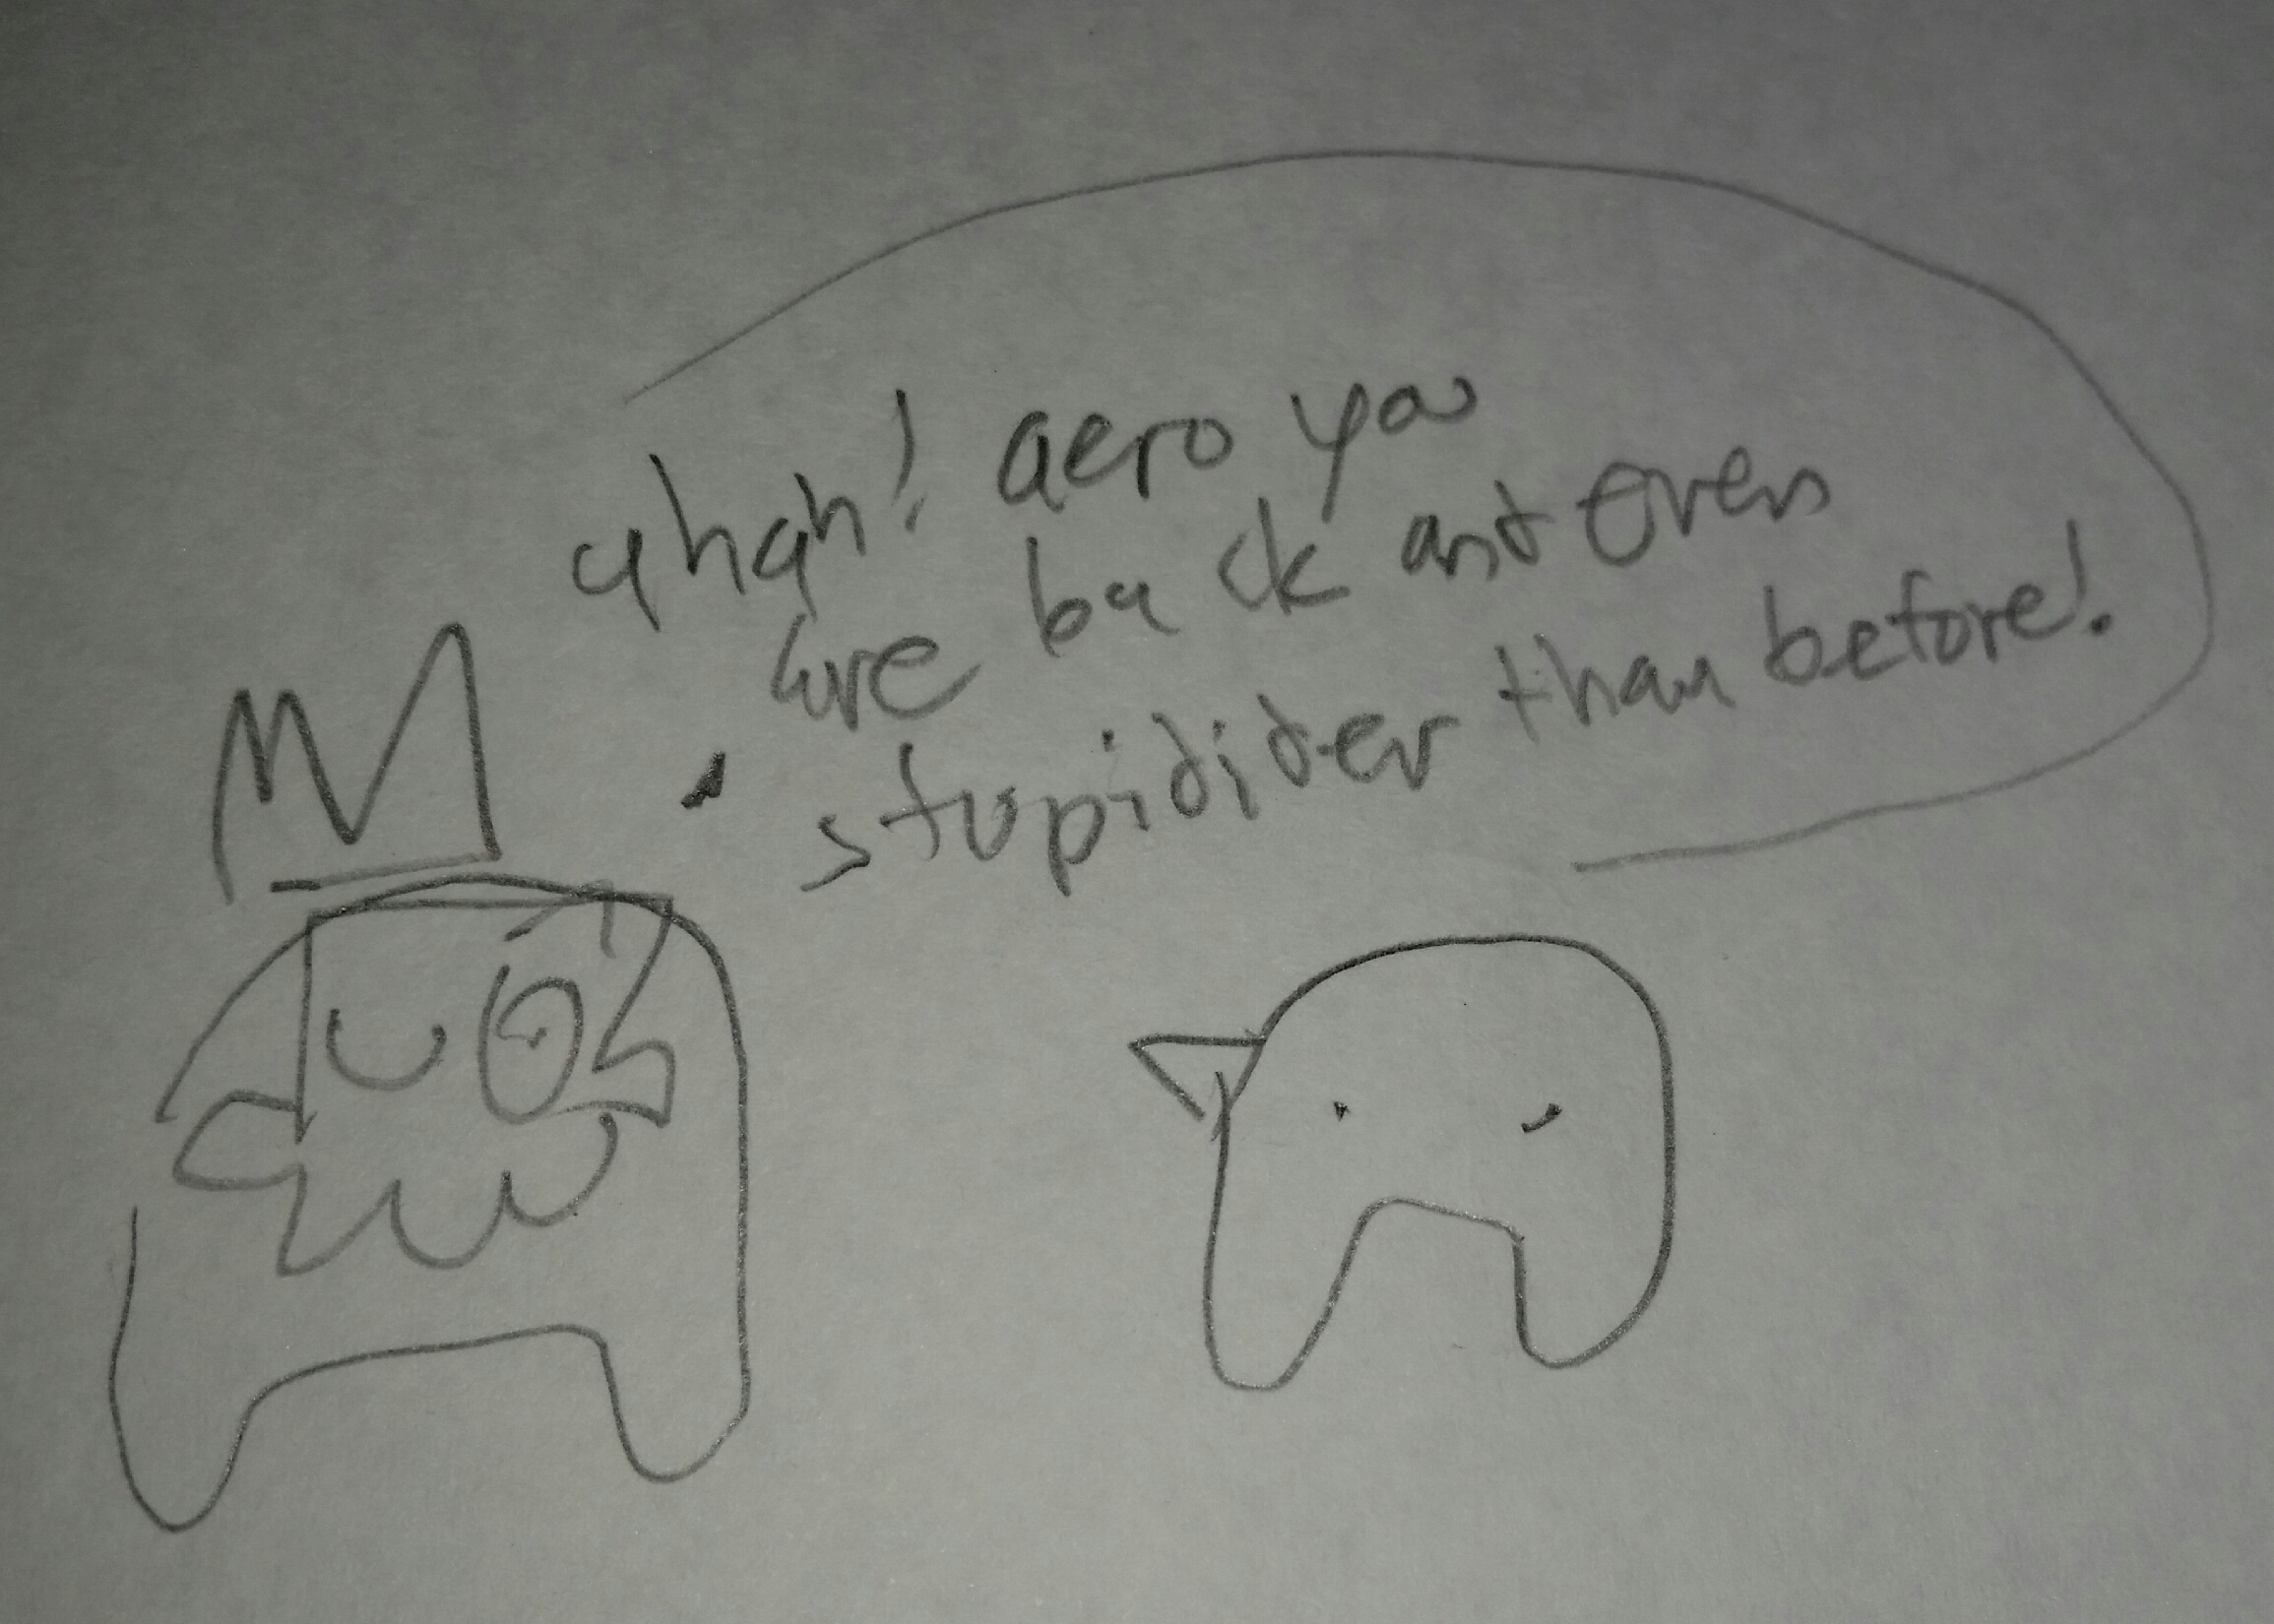 ahah! aero you
are back and even
stupiditer than before!